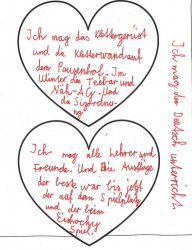 Ich mag das Klettergerüst
und die Kletterwand auf
dem Pausenhof. Im
Winter die Teebar und
Näh-AG. Und
die Sitzordnu
ng
Ich mag alle Lehrer und
Freunde. Und die Ausflüge
der beste war bis jetzt
der auf dem Spielplatz
und der beim
Eishocky
Spiel.
Ich mag den Deutsch unterricht.